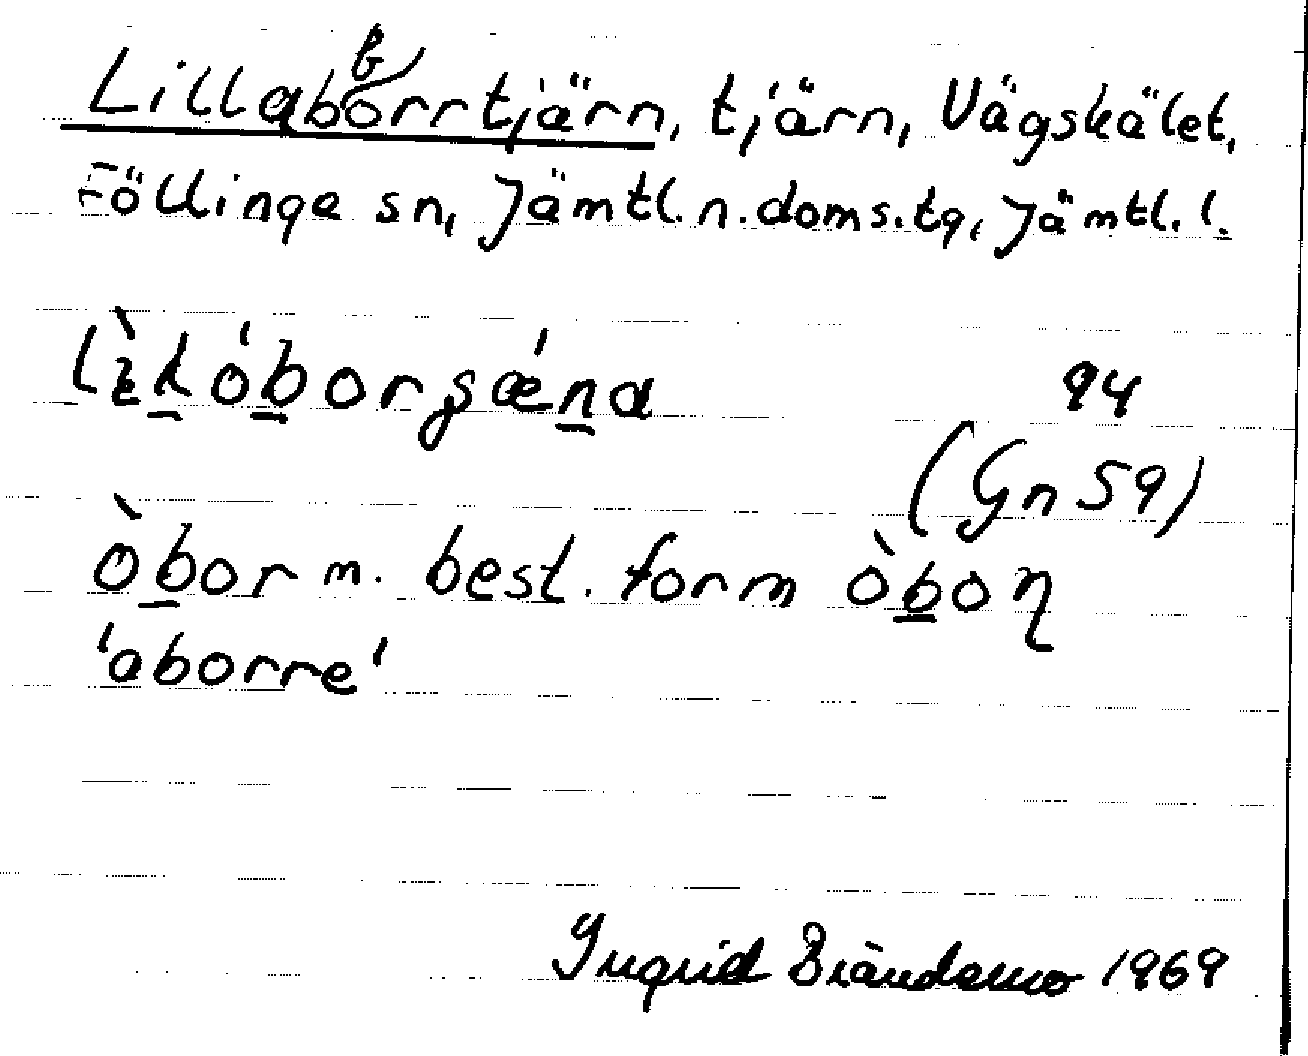 Lillaborrtjärn, tjärn, Vågskälet,
Föllinge sn, Jämtl. n. doms.tg, Jämtl. l.
94
(Gn 59)
òbor m. best. form òboɳ
'aborre'
Ingrid Brändemo 1969